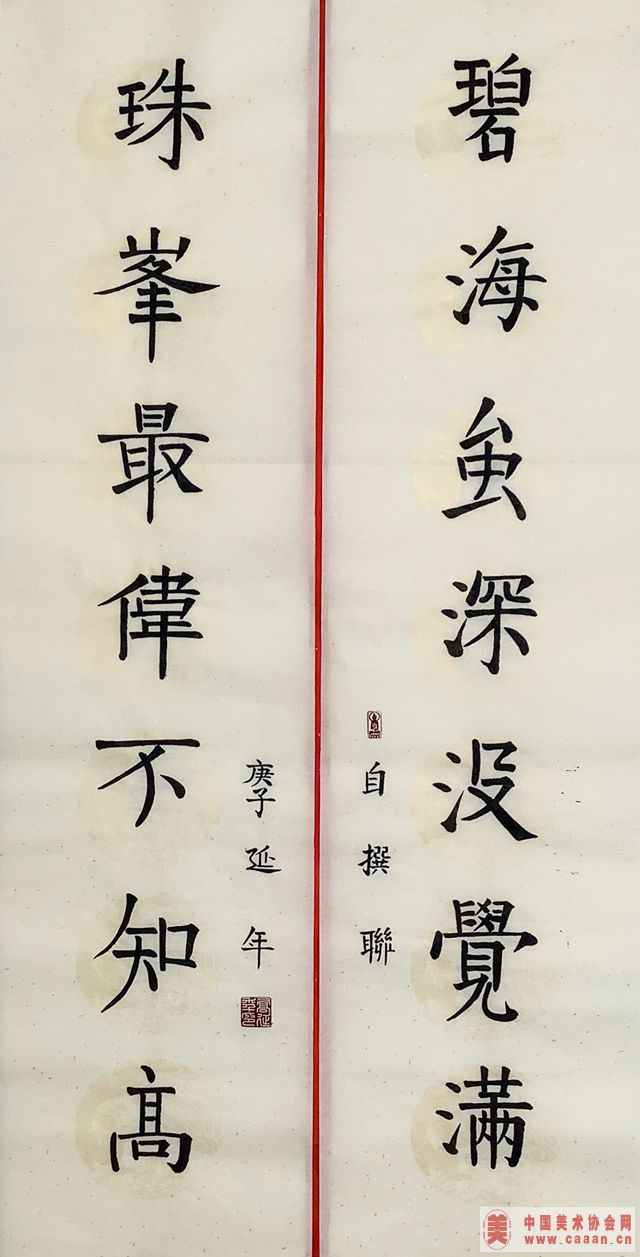 碧海虽深没覺滿
自撰聯
珠峯最偉不知髙
庚子延年
高延年印
美
中国美术协会网
www.caaan.cn